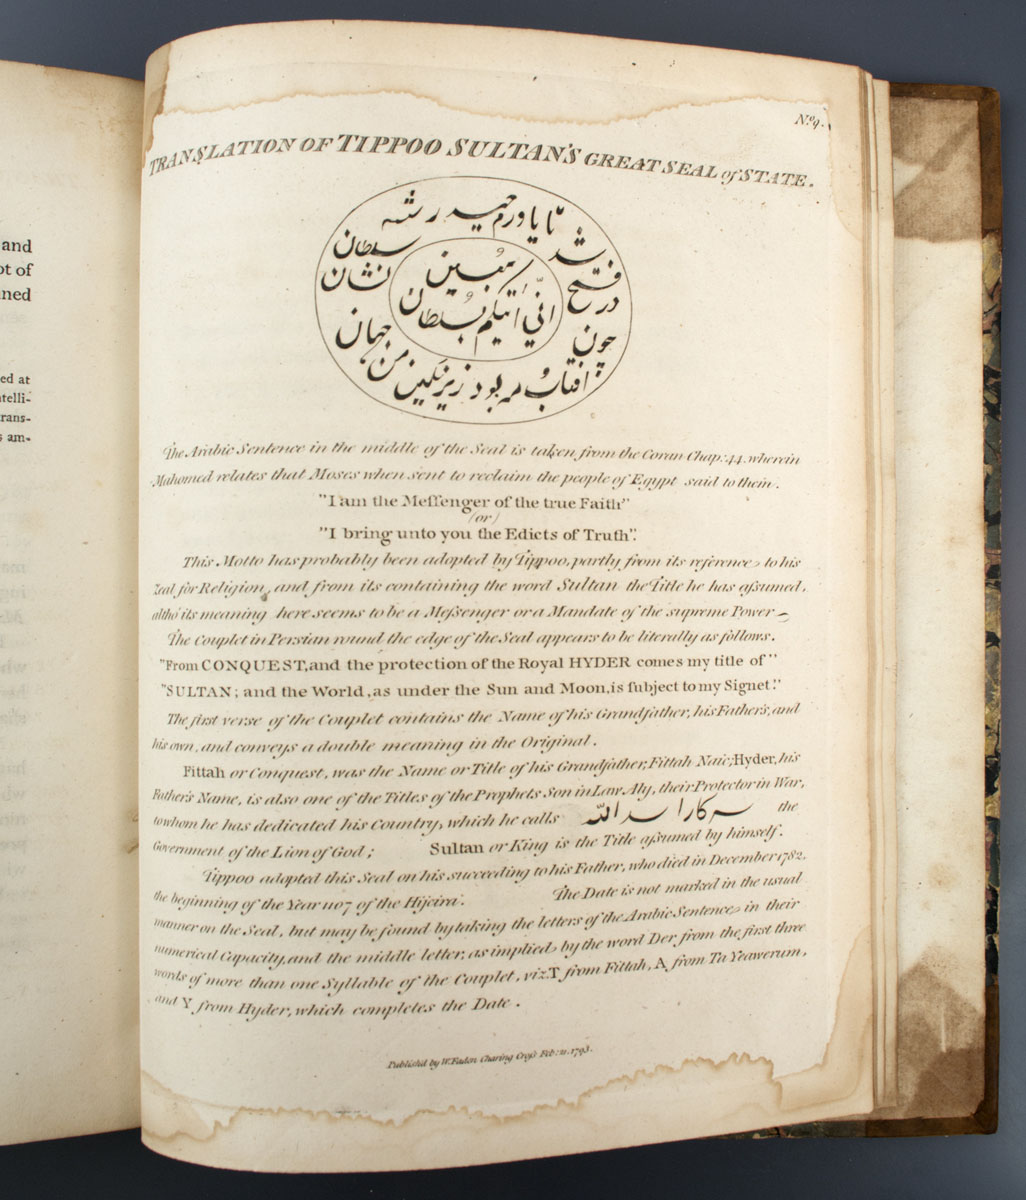 and
ot of
ned
ed at
telli-
rans-
s am-
No. 9.
TRANSLATION OF TIPPOO SULTAN'S GREAT SEAL of STATE.
در فتح شد تا یاورم حیدر شه سلطان نشان
چون افتاب و مه بود زیر نگین من جهان
انّي اتیکم بسُلطان
مُبین
The Arabic Sentence in the middle of the Seal is taken from the Coran Chap: 44. wherein
Mahomed relates that Moses when sent to reclaim the people of Egypt said to them.
"I am the Meſſenger of the true Faith"
(or)
"I bring unto you the Edicts of Truth".
This Motto has probably been adopted by Tippoo, partly from its reference to his
Zeal for Religion, and from its containing the word Sultan the Title he has aſsumed,
altho' its meaning here seems to be a Meſsenger or a Mandate of the supreme Power –
The Couplet in Persian round the edge of the Seal appears to be literally as follows.
"From CONQUEST, and the protection of the Royal HYDER comes my title of"
"SULTAN; and the World, as under the Sun and Moon, is ſubject to my Signet."
The first verse of the Couplet contains the Name of his Grandfather, his Father's, and
his own, and conveys a double meaning in the Original.
Fittah or Conquest, was the Name or Title of his Grandfather, Fittah Naic; Hyder, his
Father's Name, is also one of the Titles of the Prophets Son in Law, Aly, their Protector in War,
to whom he has dedicated his Country, which he calls سرکار اسد اللّه the
Government of the Lion of God; Sultan or King is the Title aſsumed by himself.
Tippoo adopted this Seal on his succeeding to his Father, who died in December 1782.
the beginning of the Year 1107 of the Hijeira. The Date is not marked in the usual
manner on the Seal, but may be found by taking the letters of the Arabic Sentence in their
numerical Capacity, and the middle letter, as implied by the word Der, from the first three
words of more than one Syllable of the Couplet, viz. T from Fittah, A from Ta Yeawerum,
and Y from Hyder, which completes the Date.
Publish'd by W. Faden Charing Croſs Feb: 11. 1793.